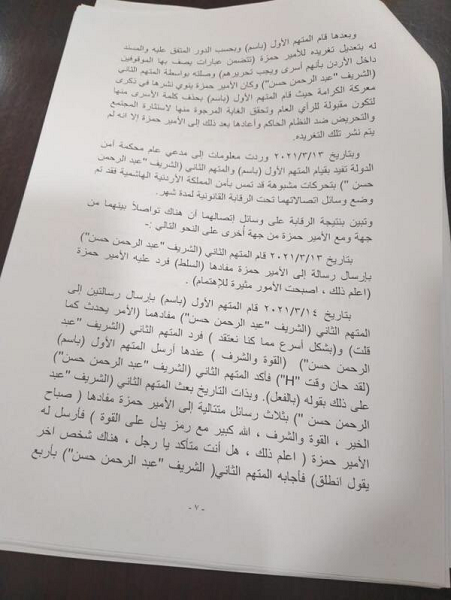 وبعدها قام المتهم الأول (باسم) وبحسب الدور المتفق عليه والمسند
له بتعديل تغريده للأمير حمزة (تتضمن عبارات يصف بها الموقوفين
داخل الأردن بأنهم أسرى ويجب تحريرهم) وصلته بواسطة المتهم الثاني
(الشريف "عبد الرحمن حسن") وكان الأمير حمزة ينوي نشرها في ذكرى
معركة الكرامة حيث قام المتهم الأول (باسم) بحذف كلمة الأسرى منها
لتكون مقبولة للرأي العام وتحقق الغاية المرجوة منها لاستثارة المجتمع
والتحريض ضد النظام الحاكم وأعادها بعد ذلك إلى الأمير حمزة إلا انه لم
يتم نشر تلك التغريده.
وبتاريخ ٢٠٢١/٣/١٣ وردت معلومات إلى مدعي عام محكمة أمن
الدولة تفيد بقيام المتهم الأول (باسم) والمتهم الثاني (الشريف "عبد الرحمن
حسن") بتحركات مشبوهة قد تمس بأمن المملكة الأردنية الهاشمية فقد تم
وضع وسائل اتصالاتهما تحت الرقابة القانونية لمدة شهر.
وتبين بنتيجة الرقابة على وسائل إتصالهما أن هناك تواصلاً بينهما من
جهة ومع الأمير حمزة من جهة أخرى على النحو التالي :-
بتاريخ ٢٠٢١/٣/١٣ قام المتهم الثاني (الشريف "عبد الرحمن حسن")
بإرسال رسالة إلى الأمير حمزة مفادها (السلط) فرد عليه الأمير حمزة
(اعلم ذلك ، اصبحت الأمور مثيرة للإهتمام) .
بتاريخ ٢٠٢١/٣/١٤ قام المتهم الأول (باسم) بإرسال رسالتين إلى
المتهم الثاني (الشريف "عبد الرحمن حسن") مفادهما (الأمر يحدث كما
قلت) و(بشكل أسرع مما كنا نعتقد ) فرد المتهم الثاني (الشريف "عبد
الرحمن حسن") (القوة والشرف ) عندها أرسل المتهم الأول (باسم)
(لقد حان وقت "H") فأكد المتهم الثاني (الشريف "عبد الرحمن حسن")
على ذلك بقوله (بالفعل). وبذات التاريخ بعث المتهم الثاني (الشريف "عبد
الرحمن حسن ") بثلاث رسائل متتالية إلى الأمير حمزة مفادها ( صباح
الخير ، القوة والشرف ، الله كبير مع رمز يدل على القوة ) فأرسل له
الأمير حمزة ( اعلم ذلك ، هل أنت متأكد يا رجل ، هناك شخص اخر
يقول انطلق) فأجابه المتهم الثاني( الشريف "عبد الرحمن حسن") بأربع
- ٧ -